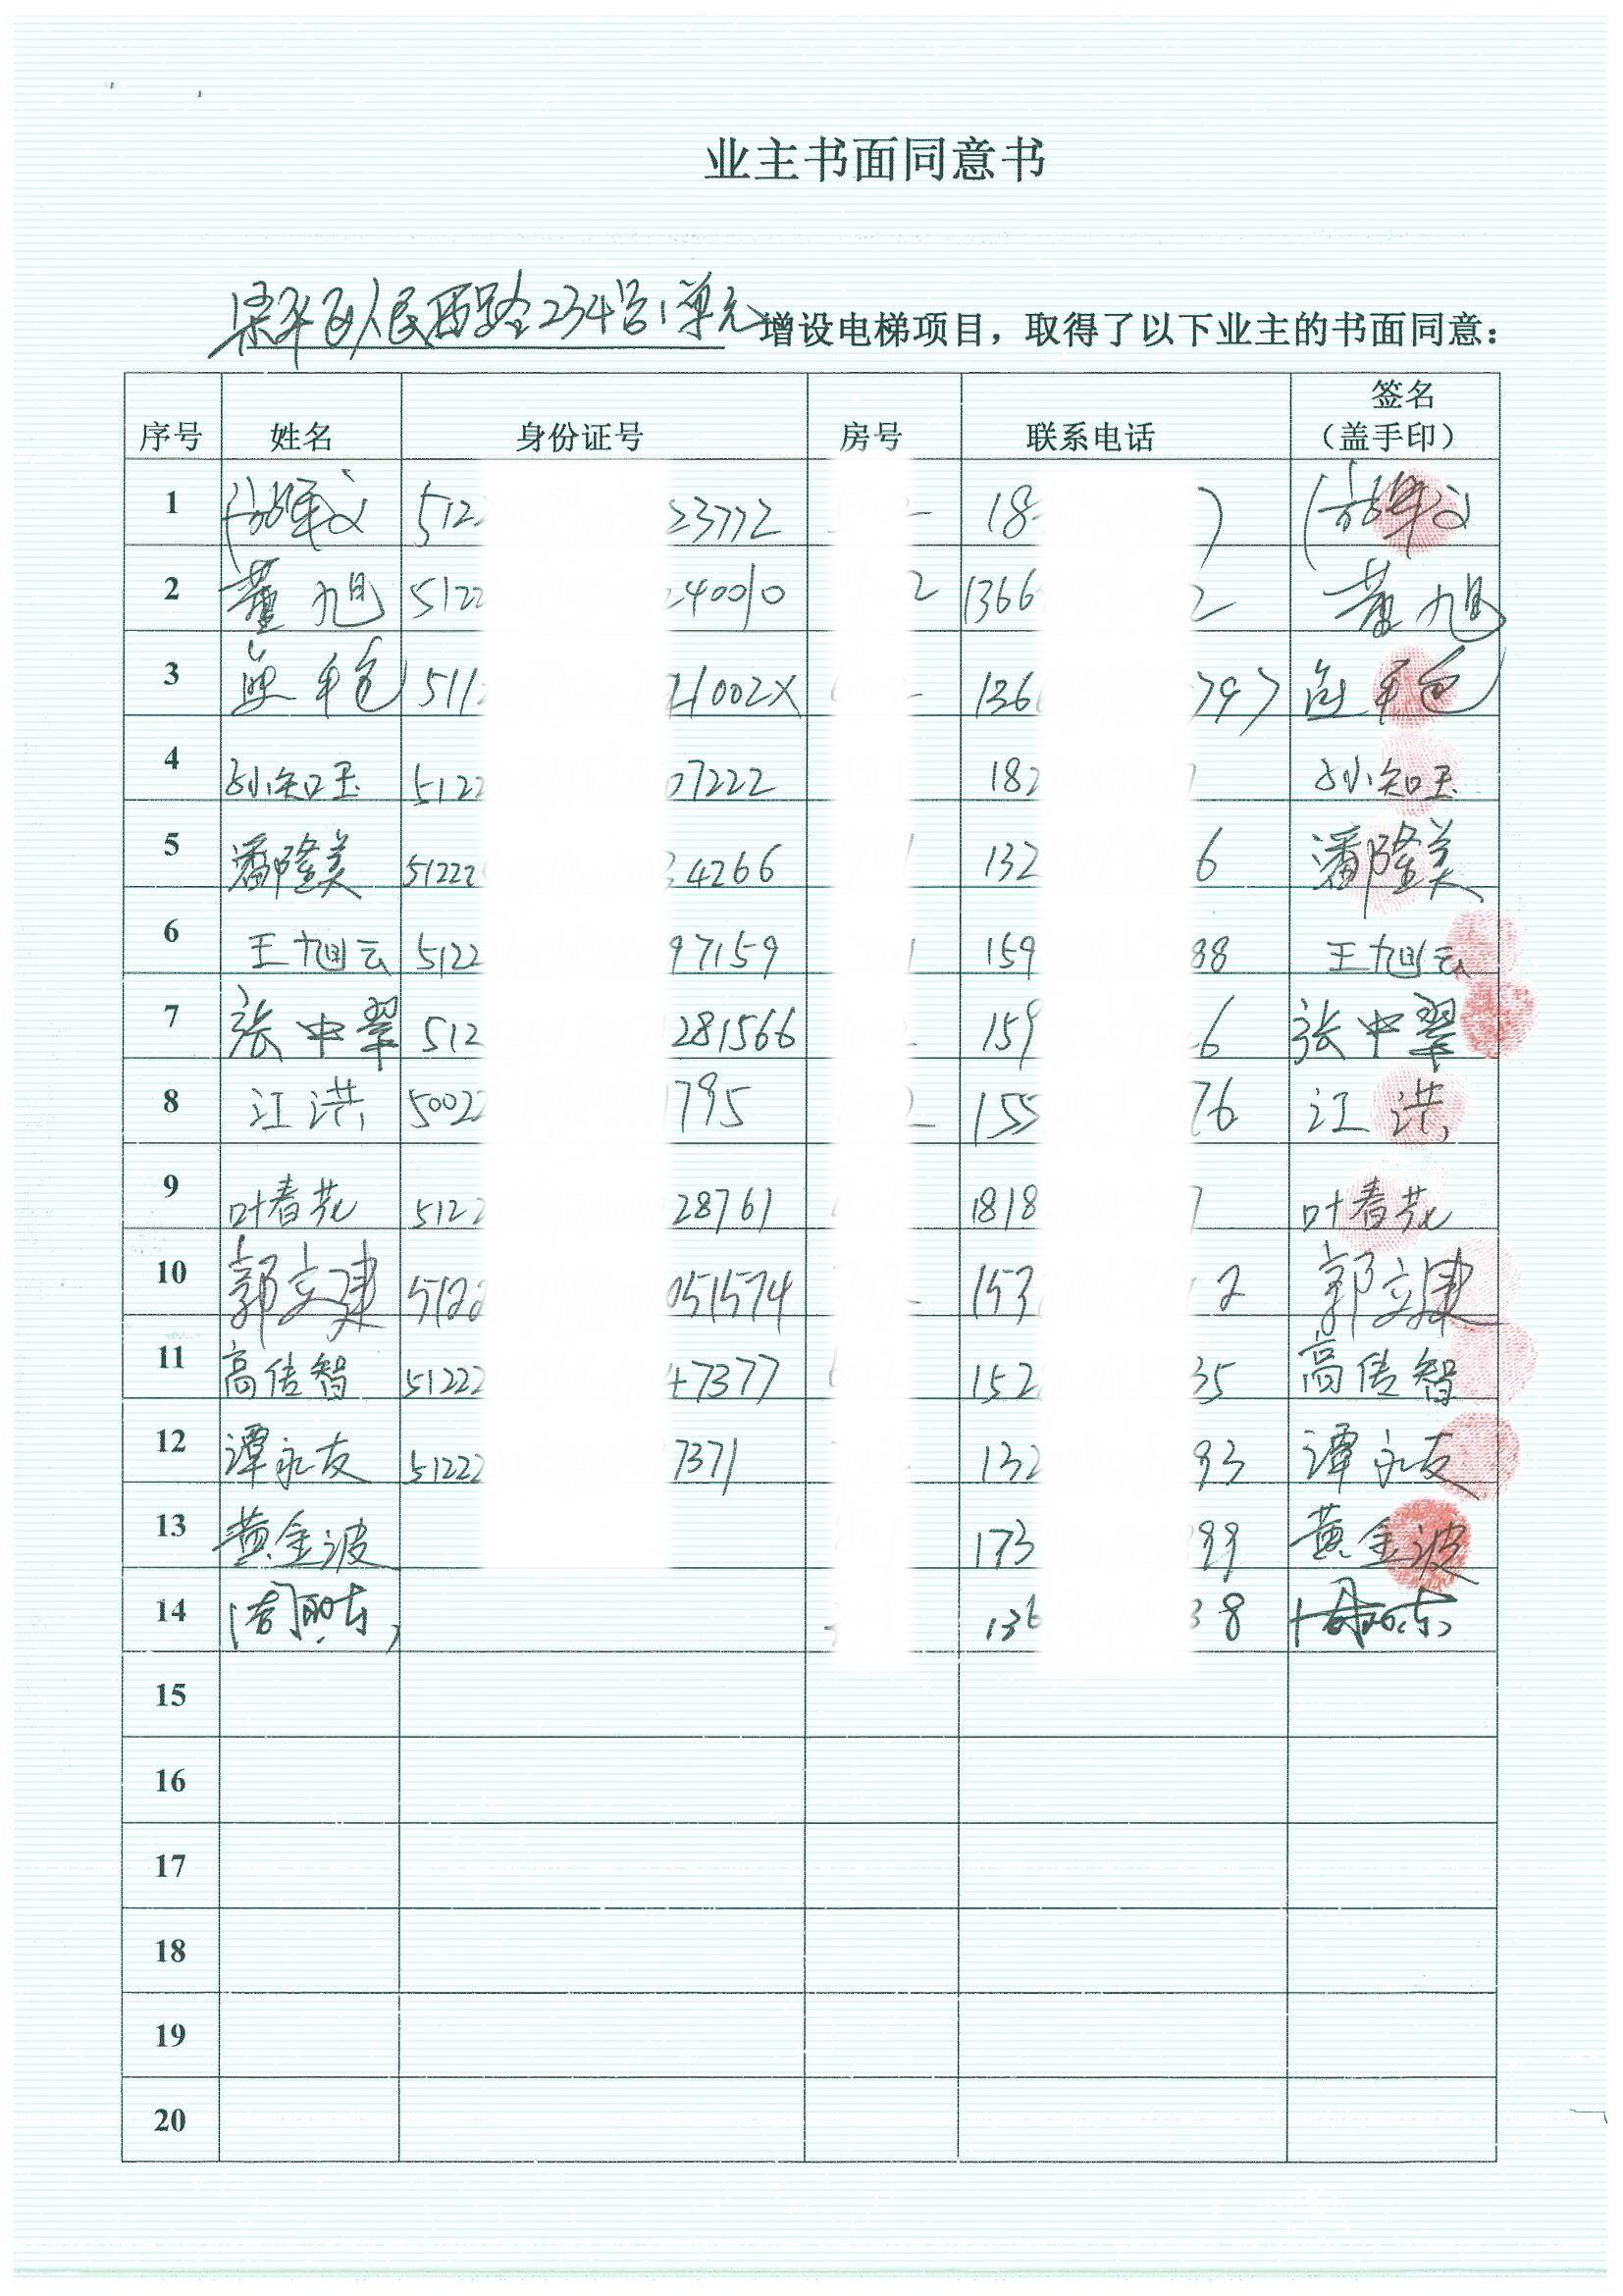 业主书面同意书
梁平区人民西路234号1单元增设电梯项目，取得了以下业主的书面同意：
序号 姓名 身份证号 房号 联系电话 签名（盖手印）
1 512 23772 18
2 董旭 5122 240010 2 1366 2 董旭
3 511 21002X 136 797
4 孙知玉 5122 07222 182 孙知玉
5 潘隆美 51222 4266 132 6 潘隆美
6 王旭云 5122 97159 159 88 王旭云
7 张中翠 512 281566 159 6 张中翠
8 江洪 5002 795 155 76 江洪
9 叶春花 5122 28761 1818 7 叶春花
10 郭立建 5122 051574 153 2 郭立建
11 高传智 51222 47377 152 35 高传智
12 谭永友 51222 7371 132 93 谭永友
13 黄金波 173 99 黄金波
14 136 38
15
16
17
18
19
20